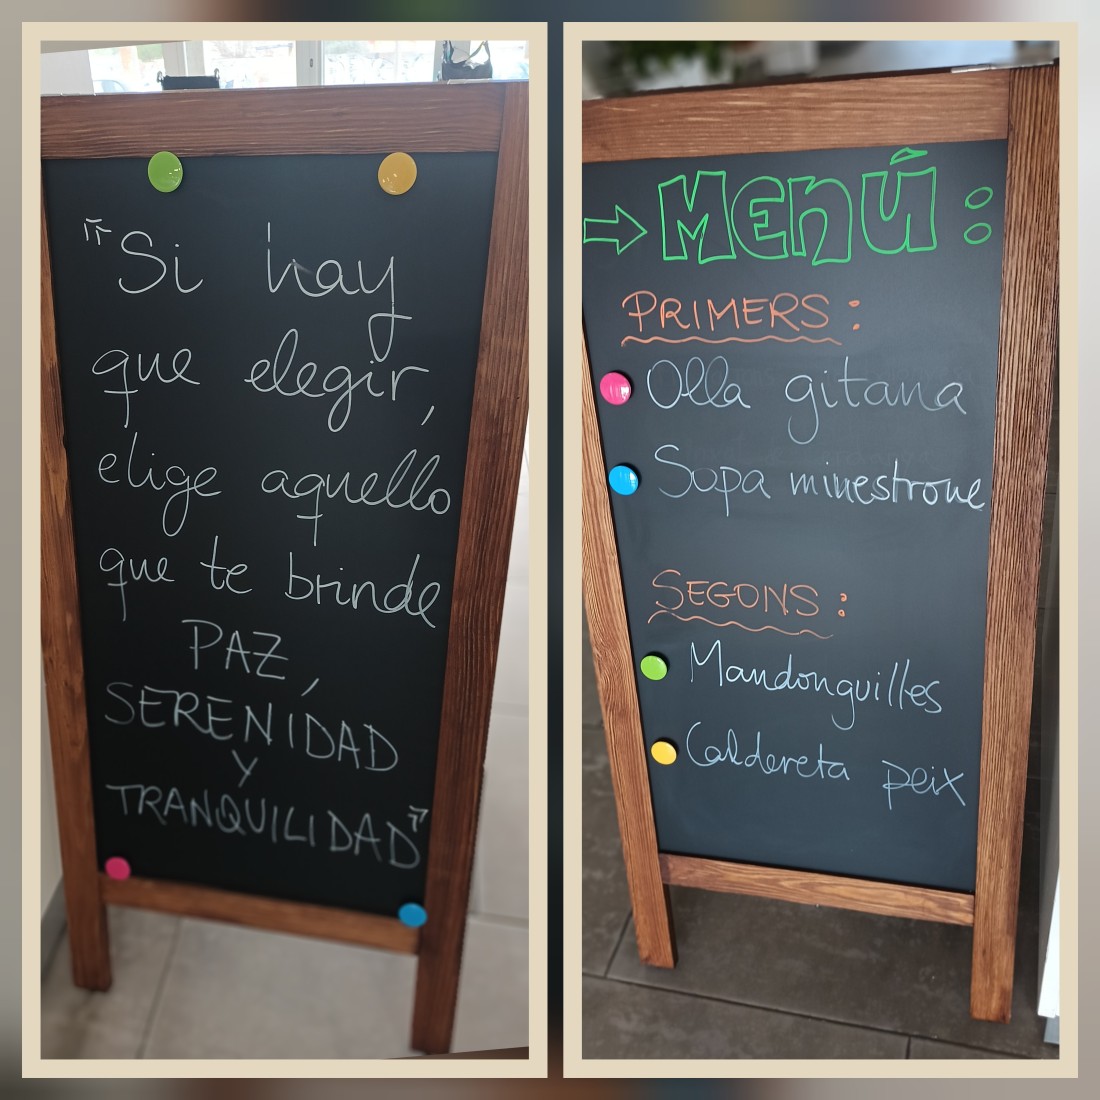 "Si hay
que elegir,
elige aquello
que te brinde
PAZ,
SERENIDAD
Y
TRANQUILIDAD"
→ MENÚ:
PRIMERS:
Olla gitana
Sopa minestrone
SEGONS:
Mandonguilles
Caldereta peix